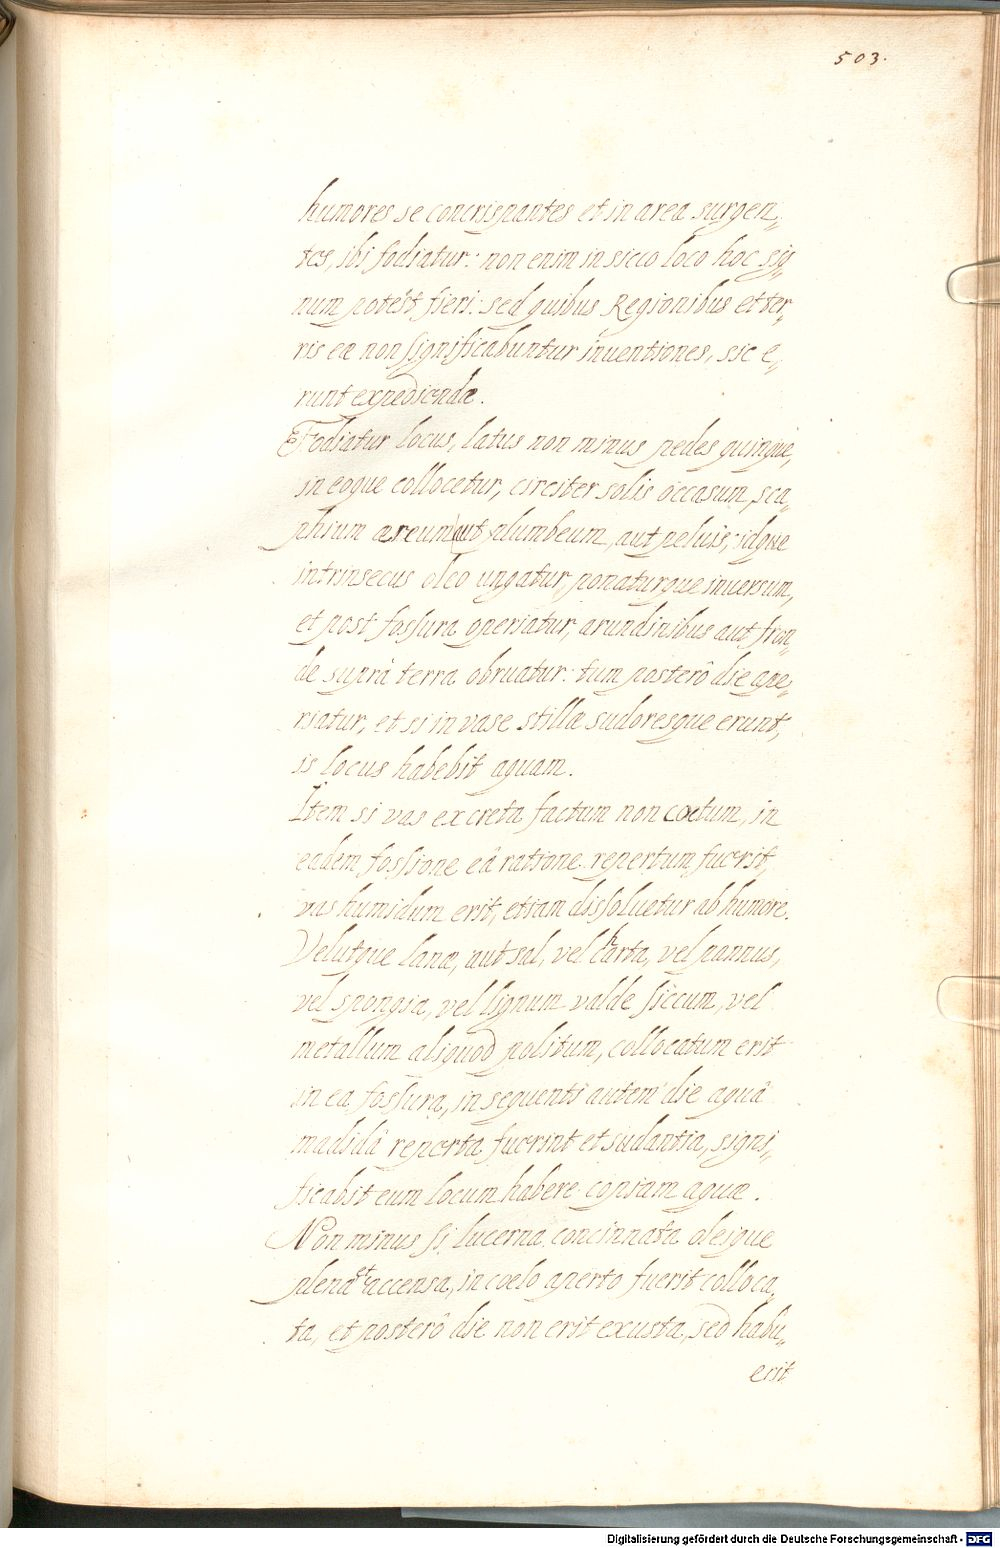 503.
humores se concrispantes et in area surgen„
tes, ibi fodiatur: non enim in sicco loco hoc sig„
num potest fieri: sed quibus Regionibus et ter„
ris eæ non significabuntur inuentiones, sic e„
runt expediendæ.
Fodiatur locus, latus non minus pedes quinque,
in eoque collocetur, circiter solis occasum, sca„
phium æreum aut plumbeum, aut peluis; idque
intrinsecus oleo ungatur, ponaturque inuersum,
et post fossura operiatur, arundinibus aut fron„
de suprà terra obruatur: tum posterô die ape„
riatur, et si in vase stillæ sudoresque erunt,
is locus habebit aquam.
Item si vas ex creta factum non coctum, in
eadem fossione eâ ratione repertum fuerit,
vas humidum erit, etiam dissoluetur ab humore.
Velutque lanæ, aut sal, vel charta, vel pannus,
vel spongia, vel lignum valde siccum, vel
metallum aliquod politum, collocatum erit
in ea fossura, in sequenti autem die aquâ
madidâ reperta fuerint et sudantia, signi„
ficabit eum locum habere copiam aquæ.
Non minus si lucerna concinnata oleique
plena et accensa, in coelo aperto fuerit colloca„
ta, et posterô die non erit exusta, sed habu„
erit
Digitalisierung gefördert durch die Deutsche Forschungsgemeinschaft - DFG